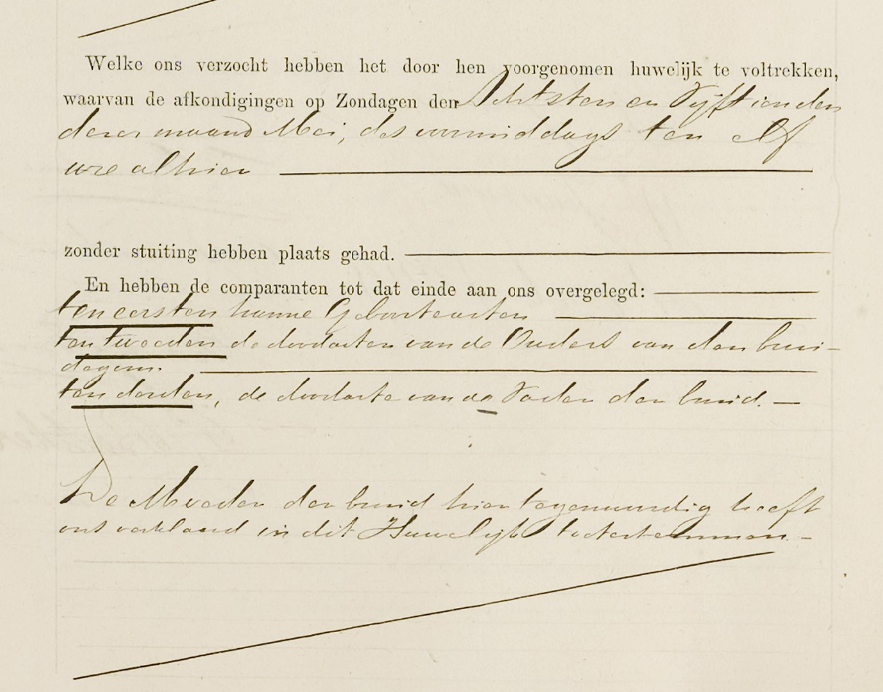 Welke ons verzocht hebben het door hen voorgenomen huwelijk te voltrekken,
waarvan de afkondigingen op Zondagen den Achtsten en Vyftienden
dezer maand Mei, des voormiddags ten elf
ure alhier
zonder stuiting hebben plaats gehad.
En hebben de comparanten tot dat einde aan ons overgelegd:
ten eersten hunne Geboorteacten
ten tweeden de doodacten van de Ouders van den brui-
degom.
ten derden, de doodacte van de Vader der bruid.
De Moeder der bruid hier tegenwoordig heeft
ons verklaard in dit Huwelijk toetestemmen.